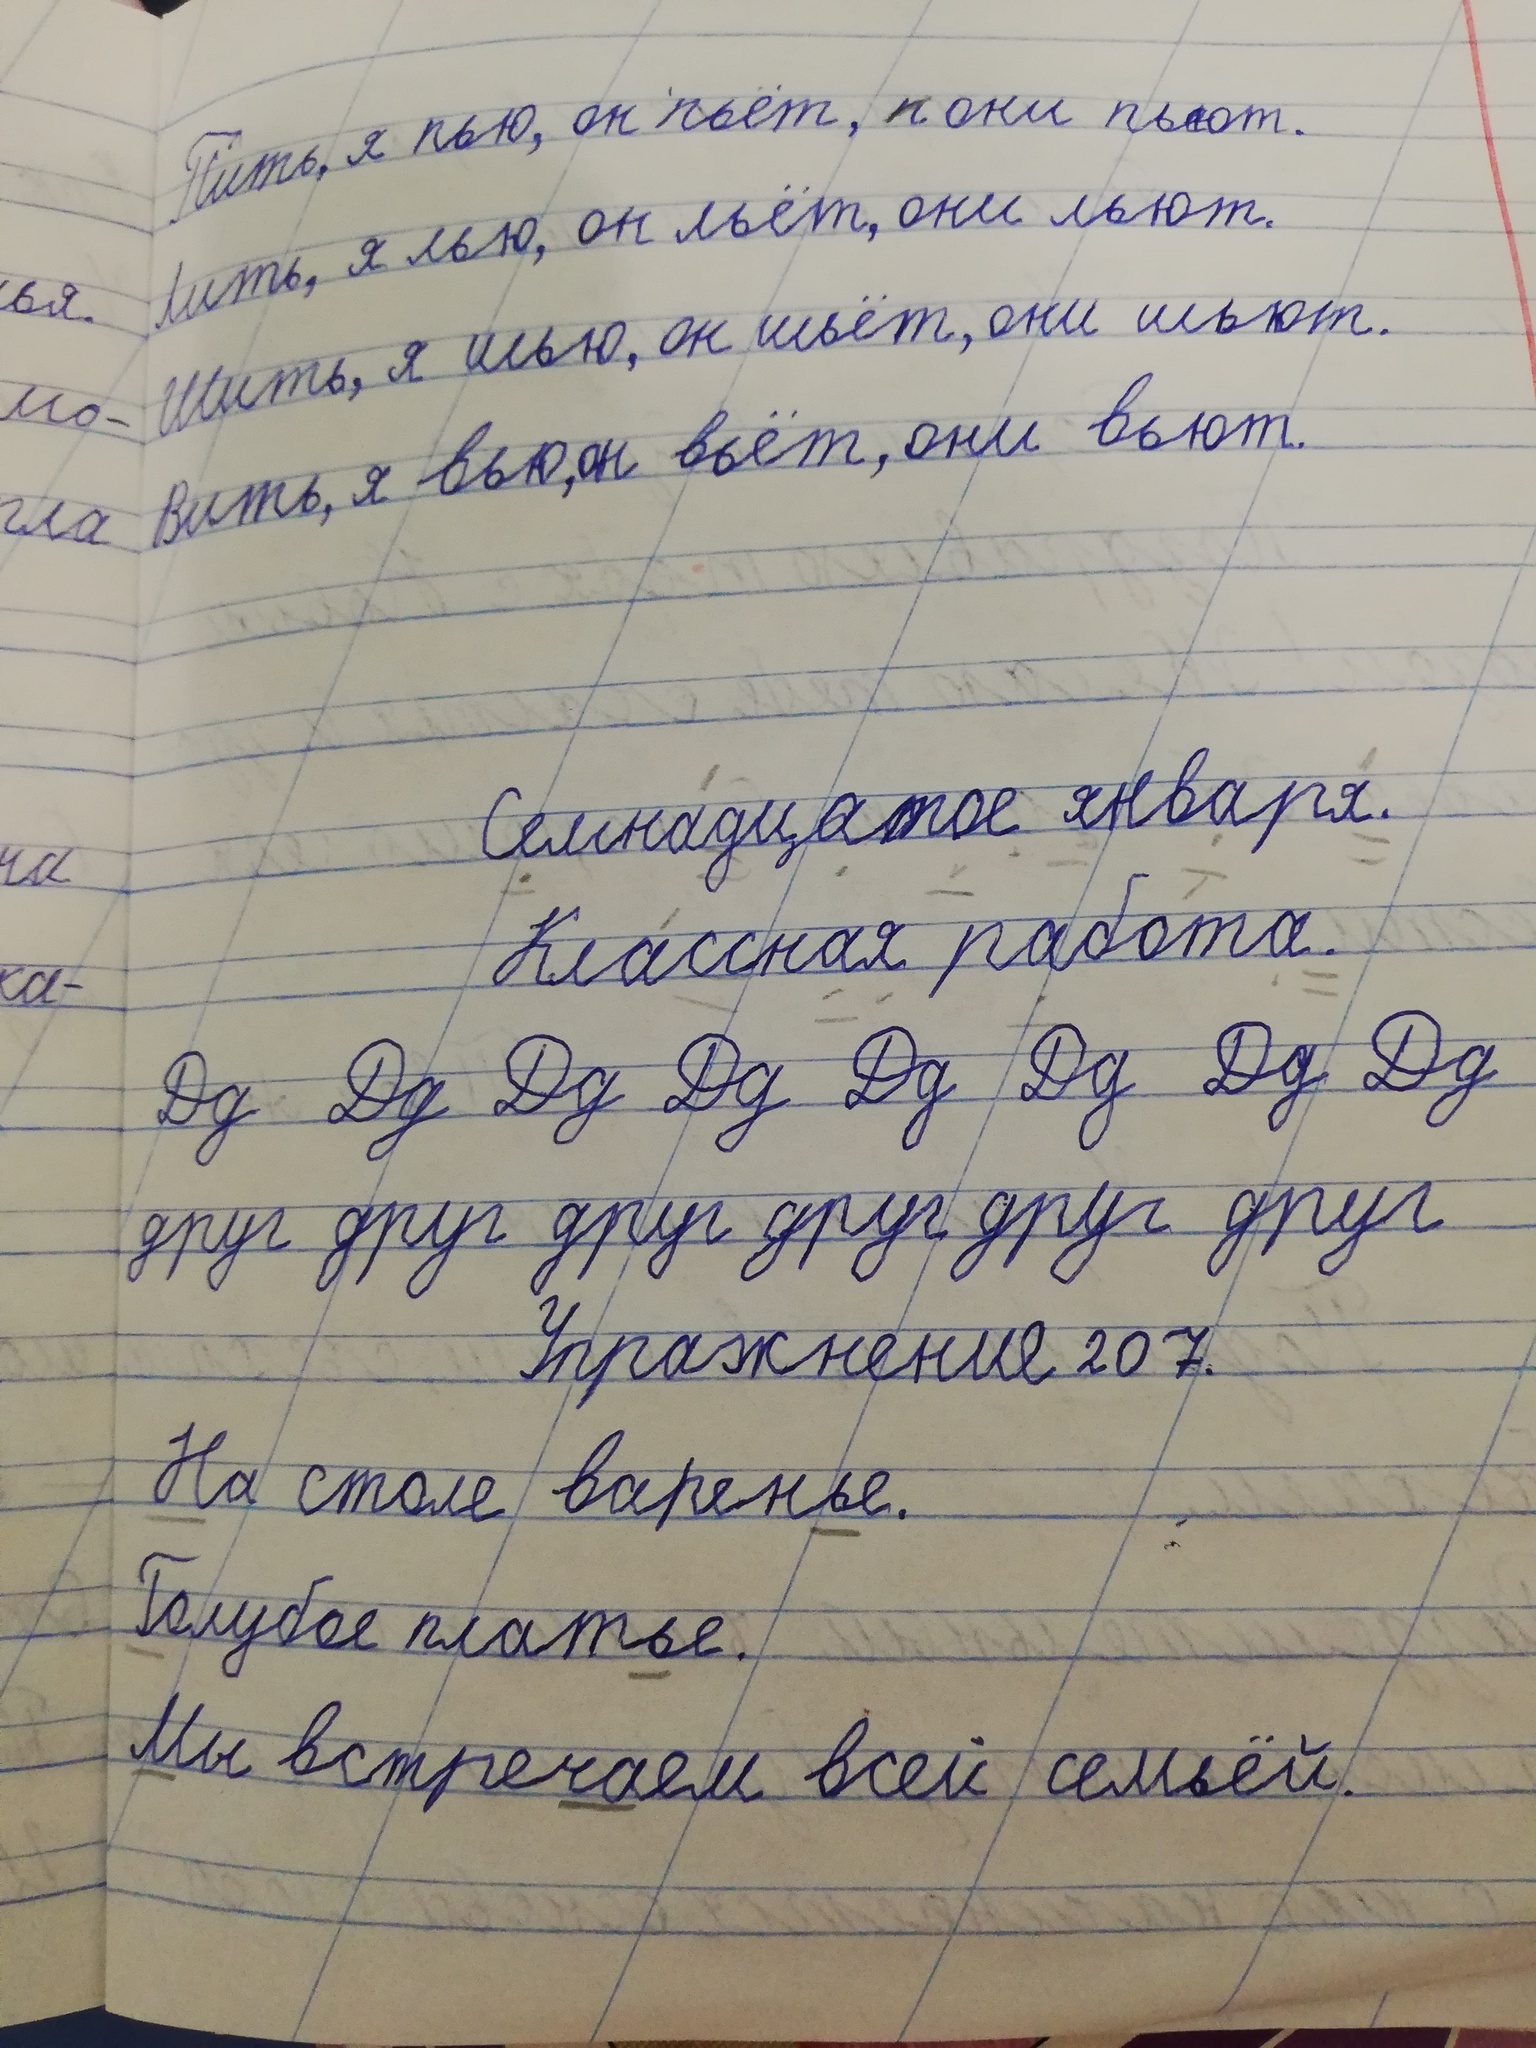 Пить, я пью, он пьёт, п они пьют.
Лить, я лью, он льёт, они льют.
Шить, я шью, он шьёт, они шьют.
Вить, я вью, он вьёт, они вьют.
ья.
мо-
гла
Семнадцатое января.
Классная работа.
ча
ка-
Дд Дд Дд Дд Дд Дд Дд Дд
друг друг друг друг друг друг
Упражнение 207.
На столе варенье.
Голубое платье.
Мы встречаем всей семьёй.